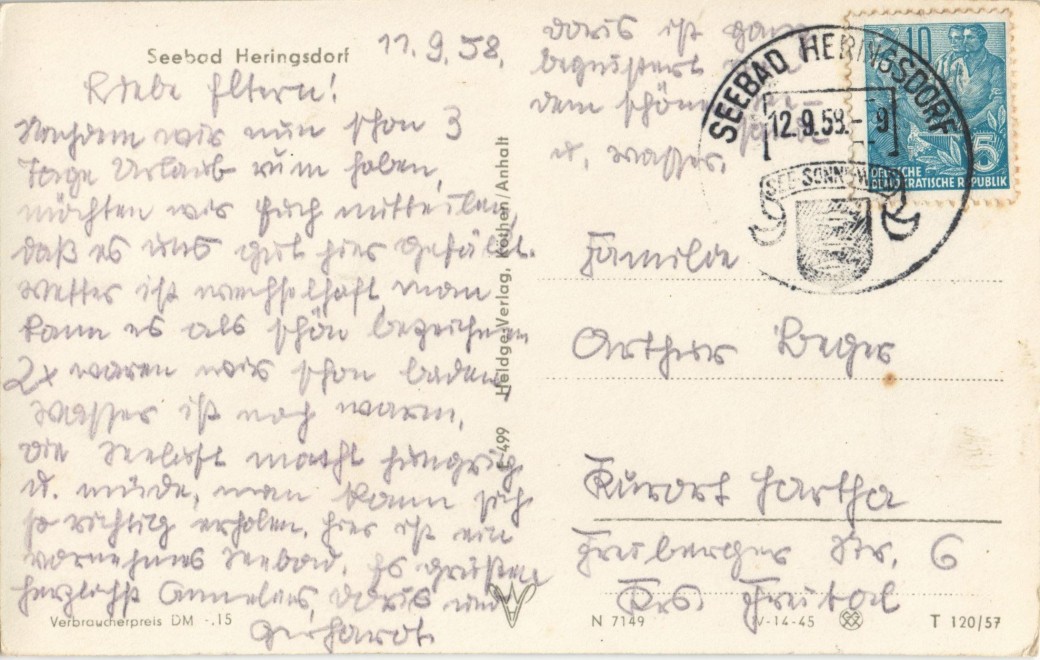 Seebad Heringsdorf
11.9.58.
Liebe Eltern!
Nachdem wir nun schon 3
Tage Urlaub rum haben,
möchten wir Euch mitteilen,
daß es uns gut hier gefällt.
Wetter ist wechselhaft man
kann es als schön bezeichnen
2x waren wir schon baden,
Wasser ist noch warm.
Die Seeluft macht hungrig
u. müde, man kann sich
so richtig erholen. Hier ist ein
vornehmes Seebad. Es grüßen
herzlichst Annelies, Doris und
Gerhardt.
Doris ist ganz
begeistert von
dem schönen
u. Wasser.
Familie
Arthur Beger
Kurort Hartha
Freiberger Str. 6
Krs. Freital
SEEBAD HERINGSDORF
12.9.58.- 9
SEE SONNE WALD
10
5
DEUTSCHE
DEMOKRATISCHE REPUBLIK
499 Heldge-Verlag, Köthen/Anhalt
Verbraucherpreis DM -.15
N 7149
V-14-45
T 120/57